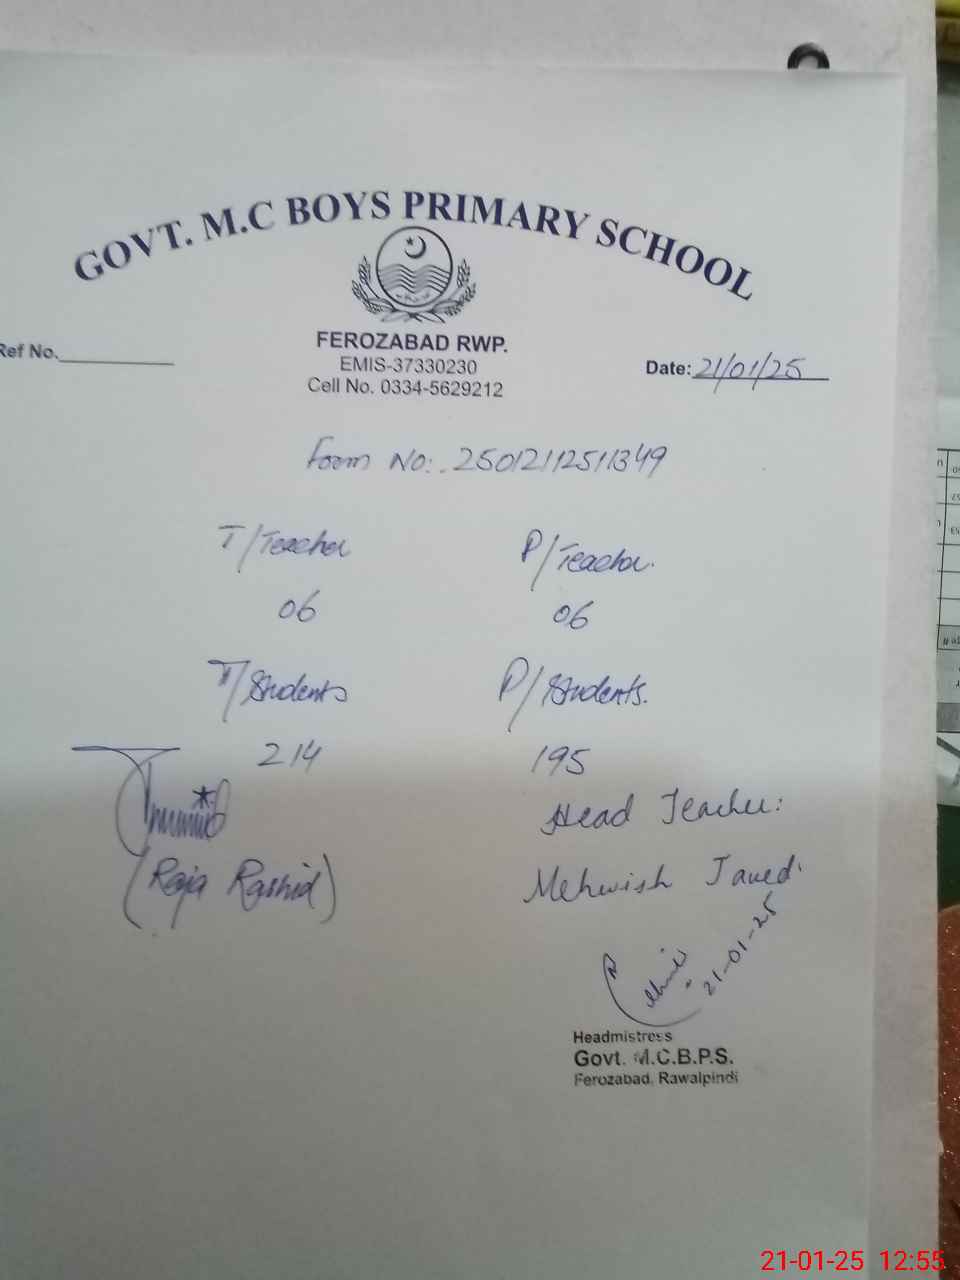 GOVT. M.C BOYS PRIMARY SCHOOL
FEROZABAD RWP.
EMIS-37330230
Cell No. 0334-5629212
Ref No.
Date: 21/01/25
Form No: 25012112511349
T/Teacher P/Teacher.
06 06
T/Students P/Students.
214 195
Head Teacher:
(Raja Rashid) Mehwish Javed.
21-01-25
Headmistress
Govt. M.C.B.P.S.
Ferozabad, Rawalpindi
21-01-25 12:55